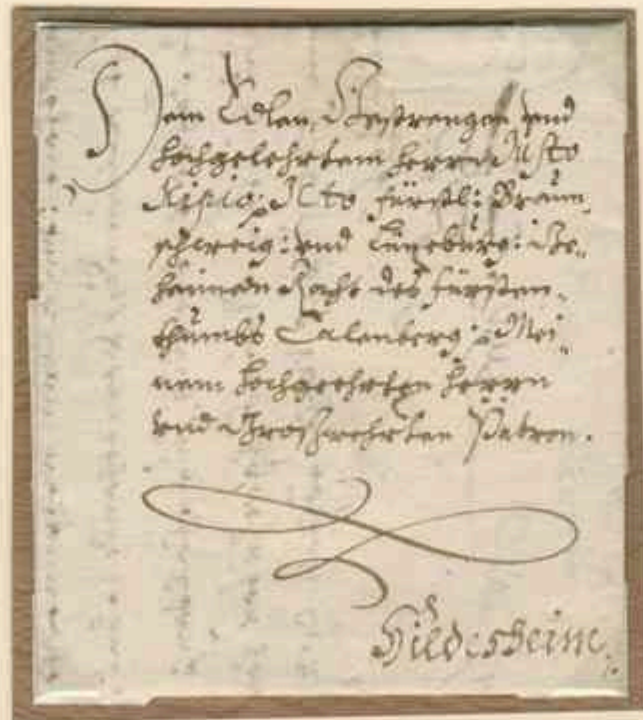 Dem Edlen, Gestrengen und
hochgelehrtem Herrn Justo
Kipio JCto fürstl: Braun,
schweig: und Lüneburg: Ge,,
häimen Raht des Fürsten,
thumbs Calenberg: Mei,,
nem hochgeehrten Herrn
und Großwehrten Patron.
Hildesheimb.